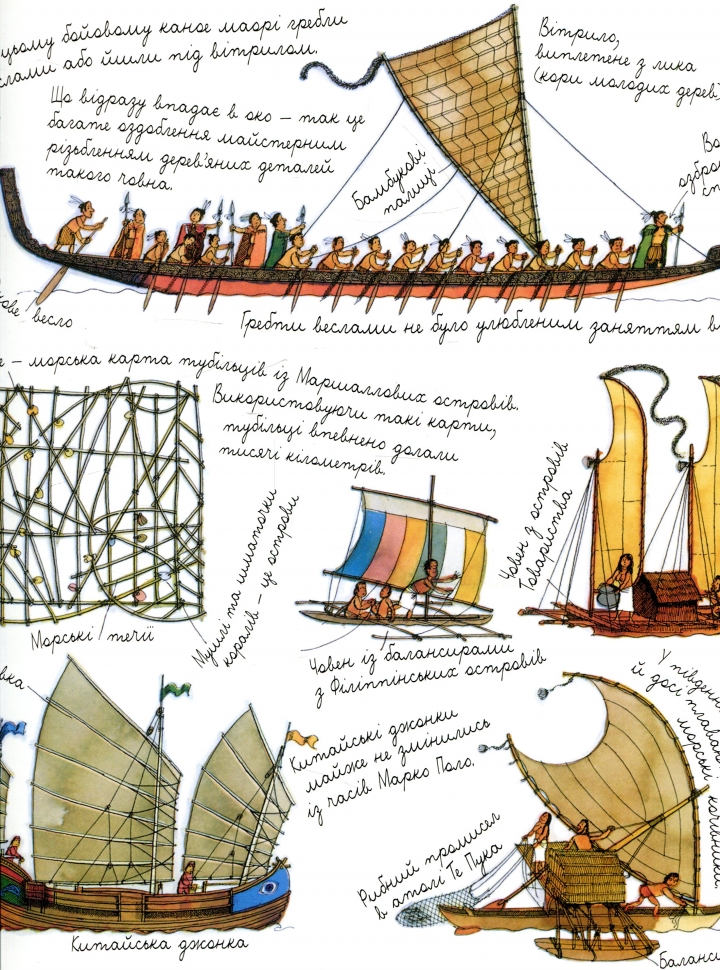 цьому бойовому каное маорі гребли
слами або йшли під вітрилом.
Що відразу впадає в око – так це
багате оздоблення майстерним
різьбленням дерев'яних деталей
такого човна.
Бамбукові
палиці
Вітрило,
виплетене з лика
(кори молодих дерев)
Во
озбро
сп
ове весло
Гребти веслами не було улюбленим заняттям в
е – морська карта тубільців із Маршаллових островів.
Використовуючи такі карти,
тубільці впевнено долали
тисячі кілометрів.
Морські течії
Мушлі та шматочки
коралів – це острови
Човен із балансирами
з Філіппінських островів
Човен з островів
Товариства
вка
Китайські джонки
майже не змінились
із часів Марко Поло.
Китайська джонка
Рибний промисел
в атолі Те Пука
У південн
й досі плаваю
морські кочівники
Баланси